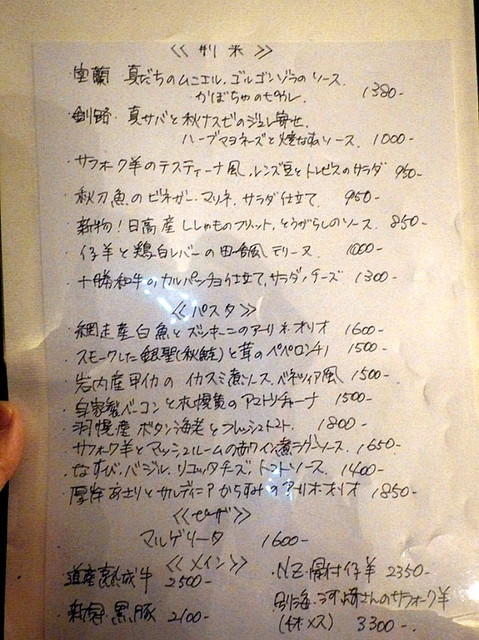 ≪ 前菜 ≫
・室蘭 真だちのムニエル、ゴルゴンゾーラのソース、
かぼちゃのピューレ 1380-
・釧路 真サバと秋ナスビのジュレ寄せ、
ハーブマヨネーズと焼なすソース、 1000-
・サフォーク羊のテスティーナ風、レンズ豆とトレビスのサラダ 950-
・秋刀魚のビネガーマリネ、サラダ仕立て、 950-
・新物！日高産ししゃものフリット、とうがらしのソース、 850-
・仔羊と鶏白レバーの田舎風テリーヌ 1000-
・十勝和牛のカルパッチョ仕立て、サラダ、チーズ 1300-
≪ パスタ ≫
・網走産白魚とズッキーニのアーリオ・オリオ 1600-
・スモークした銀聖(秋鮭)と茸のペペロンチーノ 1500-
・岩内産甲イカの イカスミ煮ソース、ベネツィア風 1500-
・自家製ベーコンと札幌黄のアマトリチャーナ 1500-
・羽幌産 ボタン海老とフレッシュトマト 1800-
・サフォーク羊とマッシュルームの赤ワイン煮ラグーソース、1650-
・なすび、バジル、リコッタチーズ、トマトソース、 1400-
・厚岸あさりとサルディニアからすみのアーリオ・オリオ 1850-
≪ピザ≫
マルゲリータ 1600-
≪メイン≫
道産熟成牛 2500-
・NZ・骨付仔羊 2350-
・新得・黒豚 2100-
・別海・河崎さんのサフォーク羊
(オス) 3300-